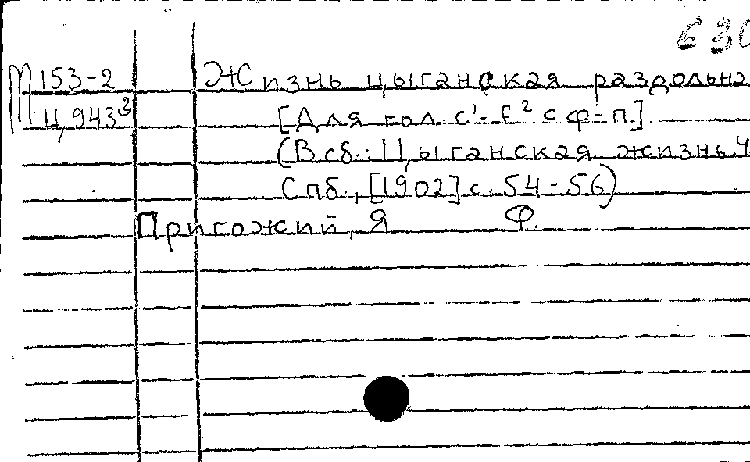 Є 30
М 153-2 Жизнь цыганская раздольна
Ц 943³ [Для гол. с¹-f² с ф-п.]
(В сб.: Цыганская жизнь Ч
Спб., [1902] с. 54-56)
Пригожий, Я Ф.